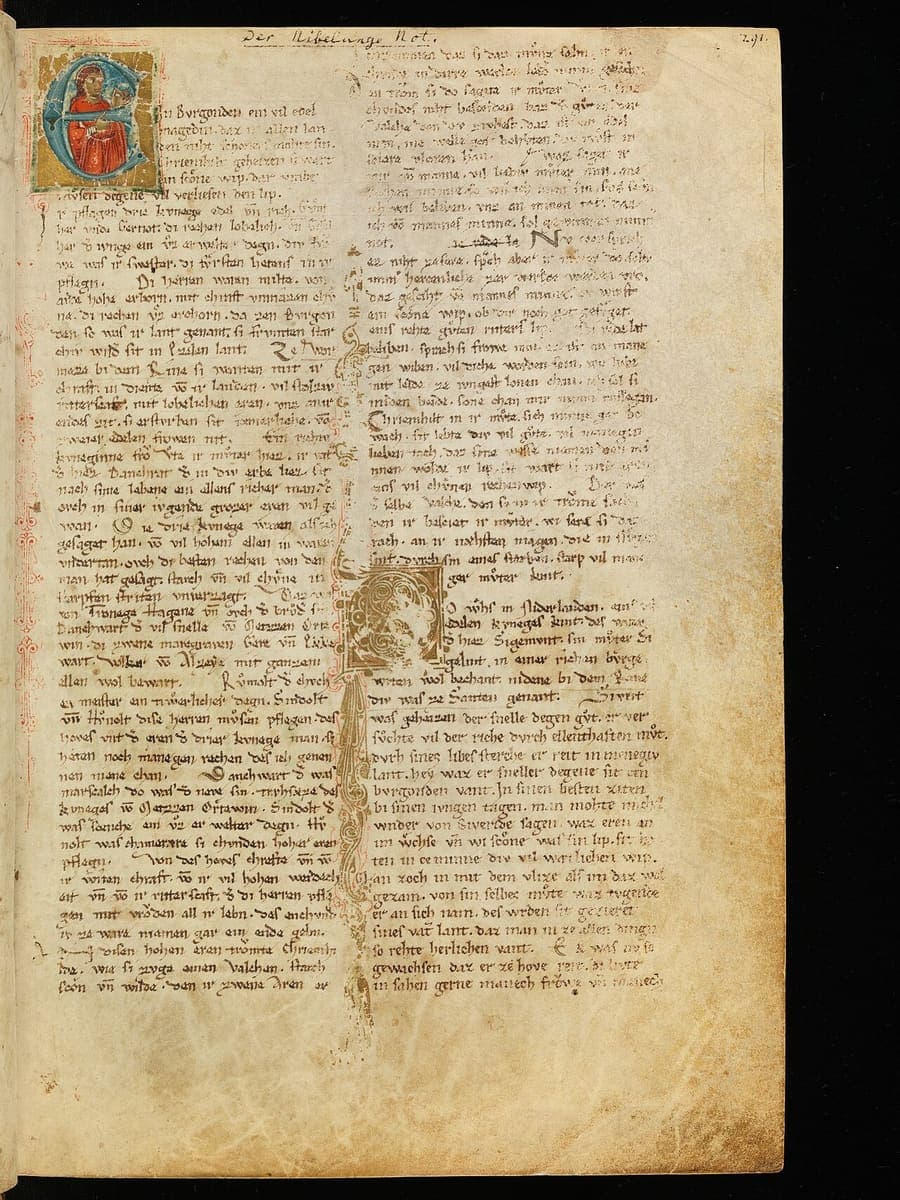 Der Nibelunge Not.
291.
E
In Burgonden ein vil edel
magedin. daz in allen lan
den niht schoners mohte sin.
Chriemhilt geheizen si wart
ein scone wip. dar umbe
mvsen degene vil verliesen den lip.
ir pflagen drie kvnege edel vñ rich. Gvnt
her unde Gernot. di rechen lobelich. vñ Gisel
her d ivnge ein vz er welter degn. div frō
we was ir swester. di fvrsten hetens in ir
pflegn. Di herren waren milte. von
arde hohe erborn. mit chraft unmazen chv
ne. di rechen vz erchorn. da zen Burgon
den so was ir lant genant. si frvmten starchiv
wnder sit in Ezelen lant. Ze Wor
meze bi dem Rine si wonten mit ir
chraft. in diente vō ir landen. vil stolziv
ritterscaft. mit lobelichen eren. unz an ir
endes zit. si ersturben sit iæmerliche. vō
zweier edelen frowen nit. Ein richiv
kvneginne frō Vte ir mvter hiez. ir vat
d hiez Danchrat. d in div erbe liez. sit
nach sime lebene ein ellens richer man. d
ovch in siner ivgende grozer eren vil ge
wan. Die drie kvnege waren als ich
gesaget han. vō vil hohem ellen in waren
undertan. ovch di besten rechen von den
man hat gesagt. starch vñ vil chvne in
scarpfen striten unverzagt. Daz was
von Tronege Hagene vñ ovch d brvd sin
Danchwart d vil snelle vō Mezzen Ort
win. di zwene maregraven Gere vñ Ekke
wart. Volker vō Alzeye mit ganzem
ellen wol bewart. Rvmolt d chvch
en meister ein tiwerlicher degn. Sindolt
vñ Hvnolt dise herren mvsen pflegen. des
hoves unt d eren d drier kvnege man. si
heten noch manegen rechen des ich genen
nen niene chan. Danchwart d was
marscalch. do was d neve sin. trvhsæze des
kvneges vō Mezzen Ortewin. Sindolt d
was scenche ein vz er welter degn. Hv
nolt was chamerære si chvnden hoher eren
pflegn. Von des hoves chrefte vñ vō
ir witen chraft. vō ir vil hohen werdech
eit vñ vō ir ritterscaft. d di herren pfla
gen mit vrōden all ir lebn. des enchvnd
iv ze ware niemen gar ein ende gebn.
In disen hohen eren trōmte Chriemhil
de. wie si zvge einen valchen. starch
scōn vñ wilde. den ir zwene aren er
daz si daz mvste sehn. ir en
chvnde in dirre werlde leid
den trōm si do sagete ir mvter
chvndes niht bescheiden baz d gvten. der
valche den dv zivhest. daz ist ein edel
man. in welle got behvten. dv mvst in
sciere vloren han. Waz saget ir
mir von manne. vil liebiv mvter min. ane
rechen minne so wil ich imm sin. svs scōn
ich wil beliben. unz an minen tot. daz
ich vō mannes minne. sol gewinnen nimmer
not. Nv versprich
ez niht ze sere. sprach aber ir mvter do. soltv
immer herzenliche zer werlde werden vro.
daz gesciht vō mannes minne. dv wirst
ein scōne wip. ob dir noch got gefvget.
eins rehte gvten riters lip. Di rede lat
beliben. sprach si. frowe min. ez ist an mane
gen wiben. vil diche worden scin. wi liebe
mit leide ze iungest lonen chan. ich sol si
miden beide. sone chan mir nimmer missegan.
Chriemhilt in ir mvte. sich minne gar be
wach. sit lebte div vil gvte. vil manegen
lieben tach. daz sine wesse niemen den mi
nnen wolde ir lip. sit wart si mit eren
eins vil chvnen rechen wip. Der was
d selbe valche. den si in ir trōme sach
den ir besciet ir mvter. wi sere si daz
rach. an ir næhsten magen. die in slvgen
sint. durch sin eines sterben. starp vil mane
ger mvter kint.
Do whs in Niderlanden. eins
edelen kvneges kint. des vater
d hiez Sigemunt. sin mvter Si
gelint. in einer richen bvrge.
witen wol bechant. nidene bi dem Rine
div was ze Santen genant. Sivrit
was geheizen der snelle degen gvt. er ver
sōchte vil der riche dvrch ellenthaften mvt.
dvrh sines libes sterche er reit in menegiv
lant. hey waz er sneller degene sit cen
burgonden vant. In sinen besten ziten.
bi sinen ivngen tagen. man mohte michl
wnder von Sivride sagen. waz eren an
im wchse vñ wi scōne was sin lip. sit he
ten in ce minne div vil wætlichen wip.
Man zoch in mit dem vlize als im daz wol
gezam. von sin selbes mvte waz tvgende
er an sich nam. des wrden sit gezieret
sines vat lant. daz man in ze allen dingn
so rehte herlichen vant. Er was nv so
gewachsen daz er ze hove reit. di livte
in sahen gerne manech frōwe vñ manech